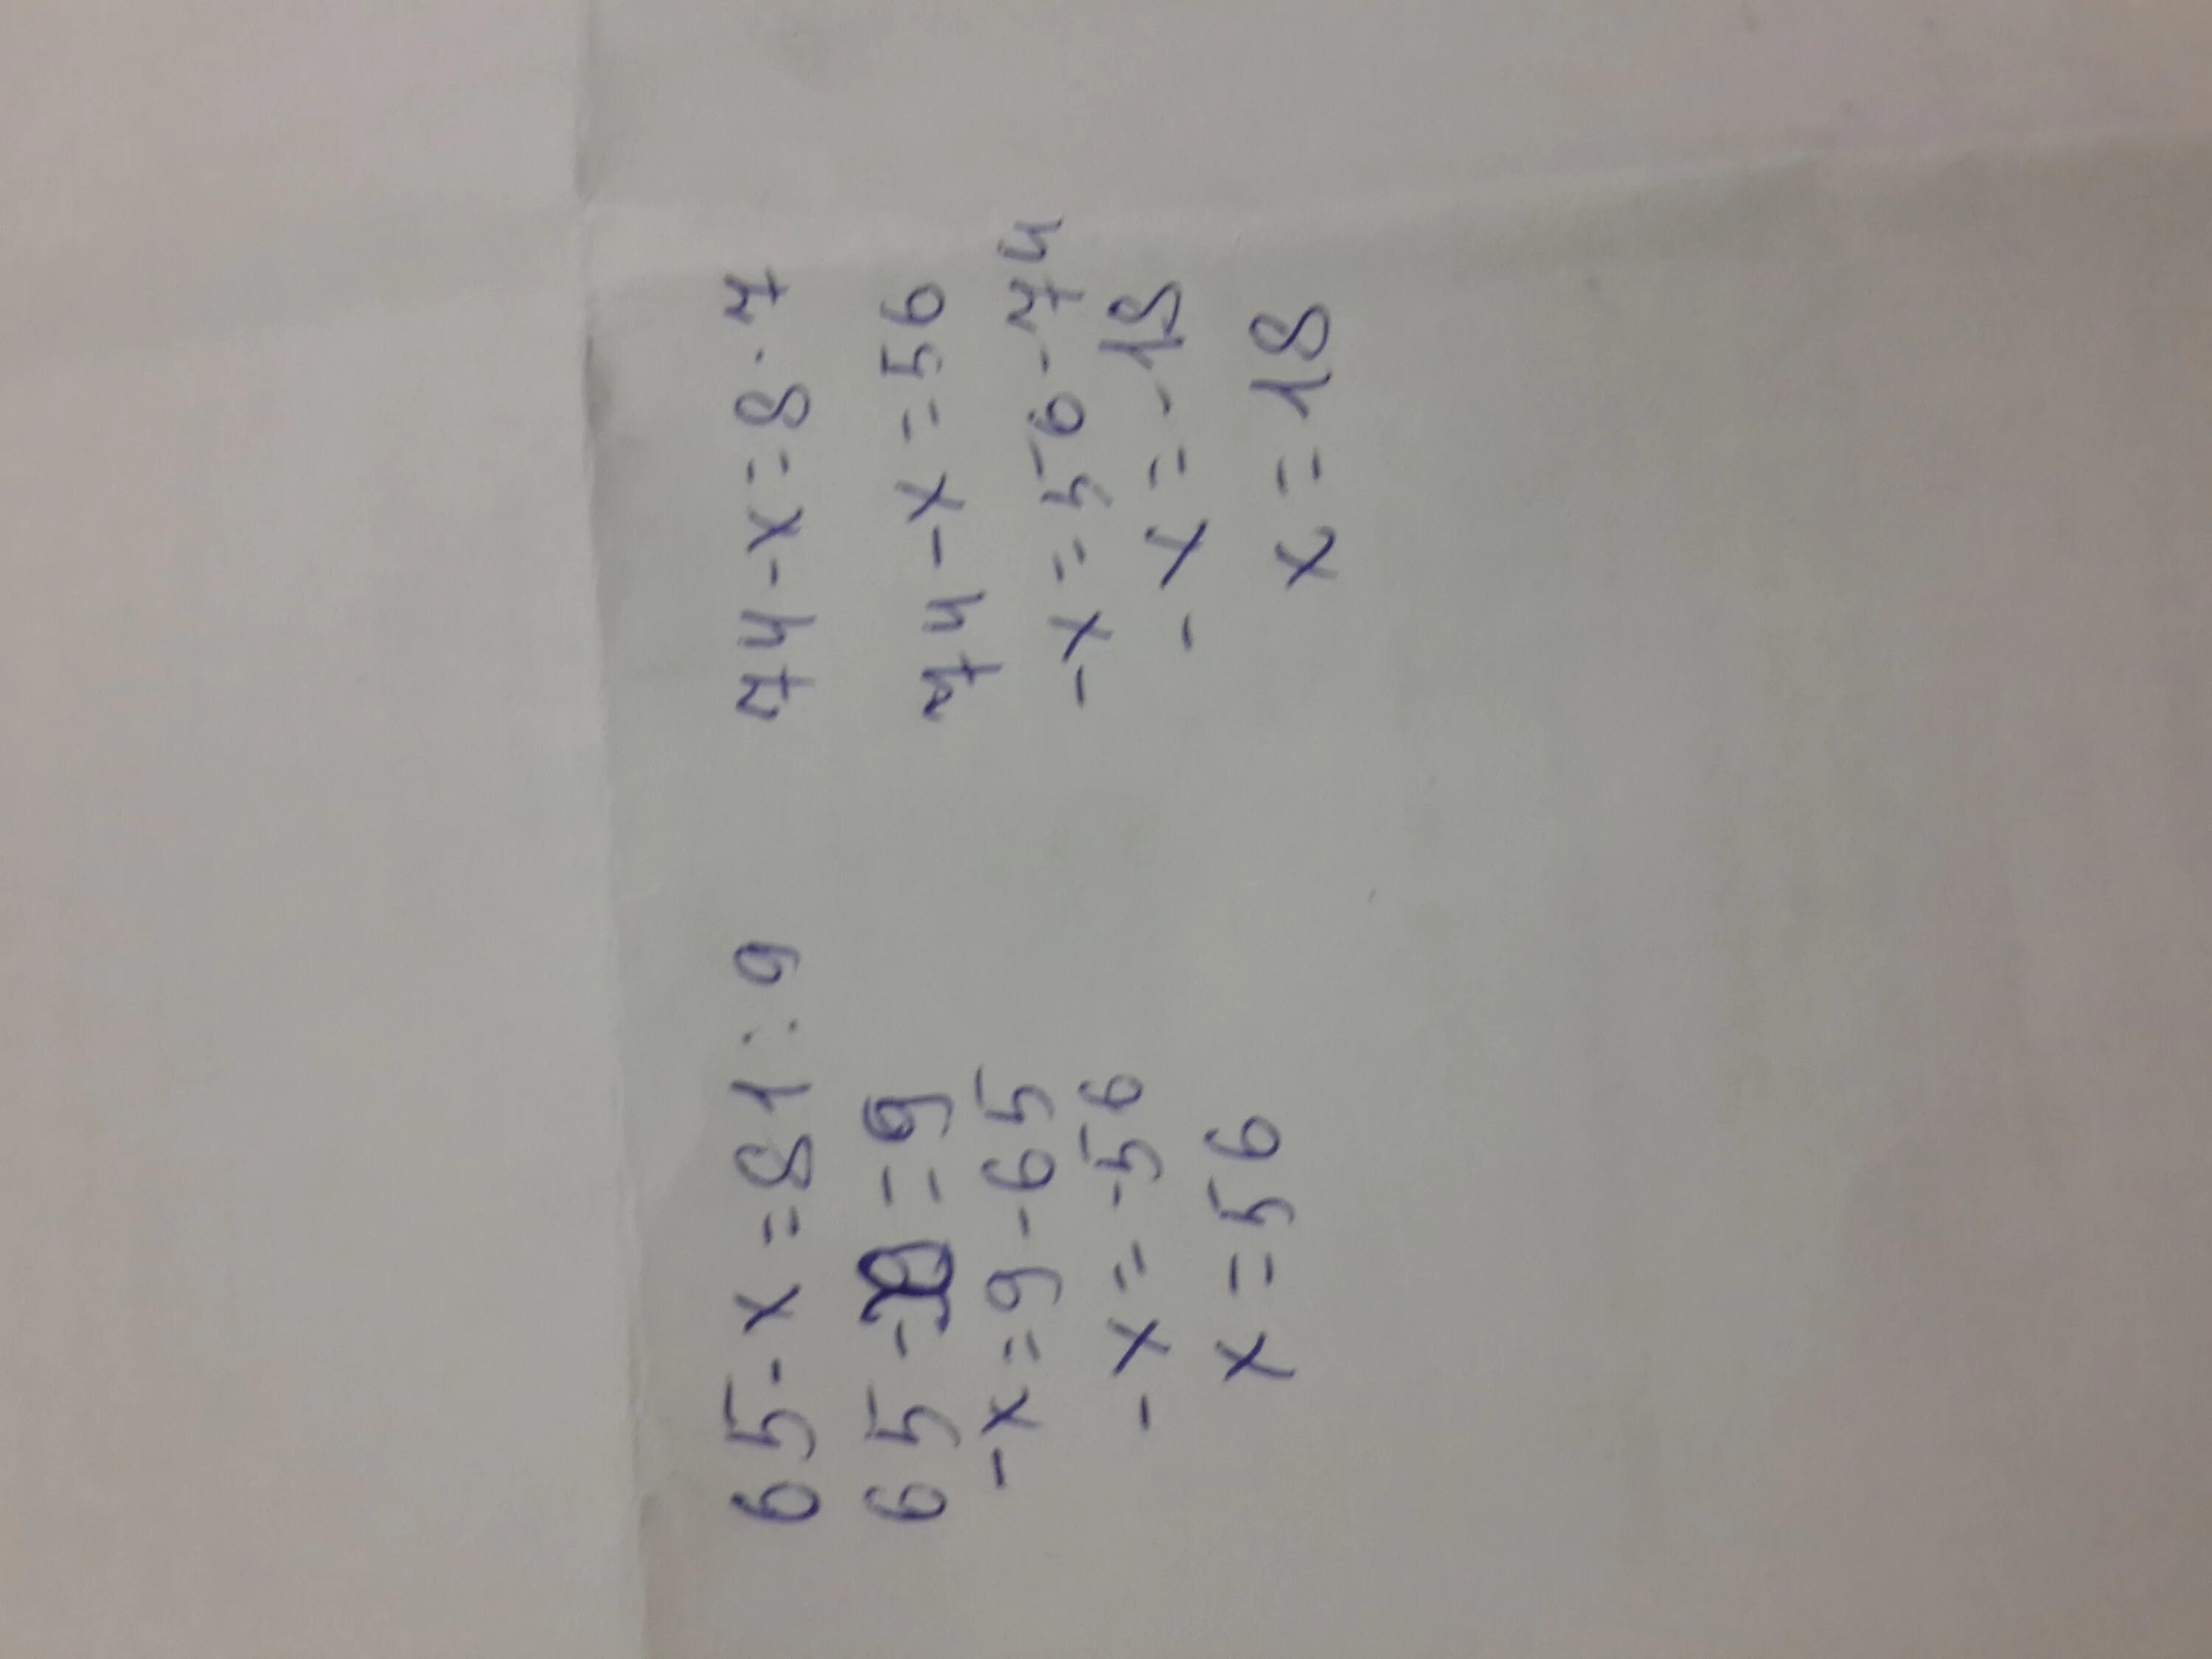 65-x=81:9
65-x=9
-x=9-65
-x=-56
x=56
74-x=8·7
74-x=56
-x=56-74
-x=-18
x=18